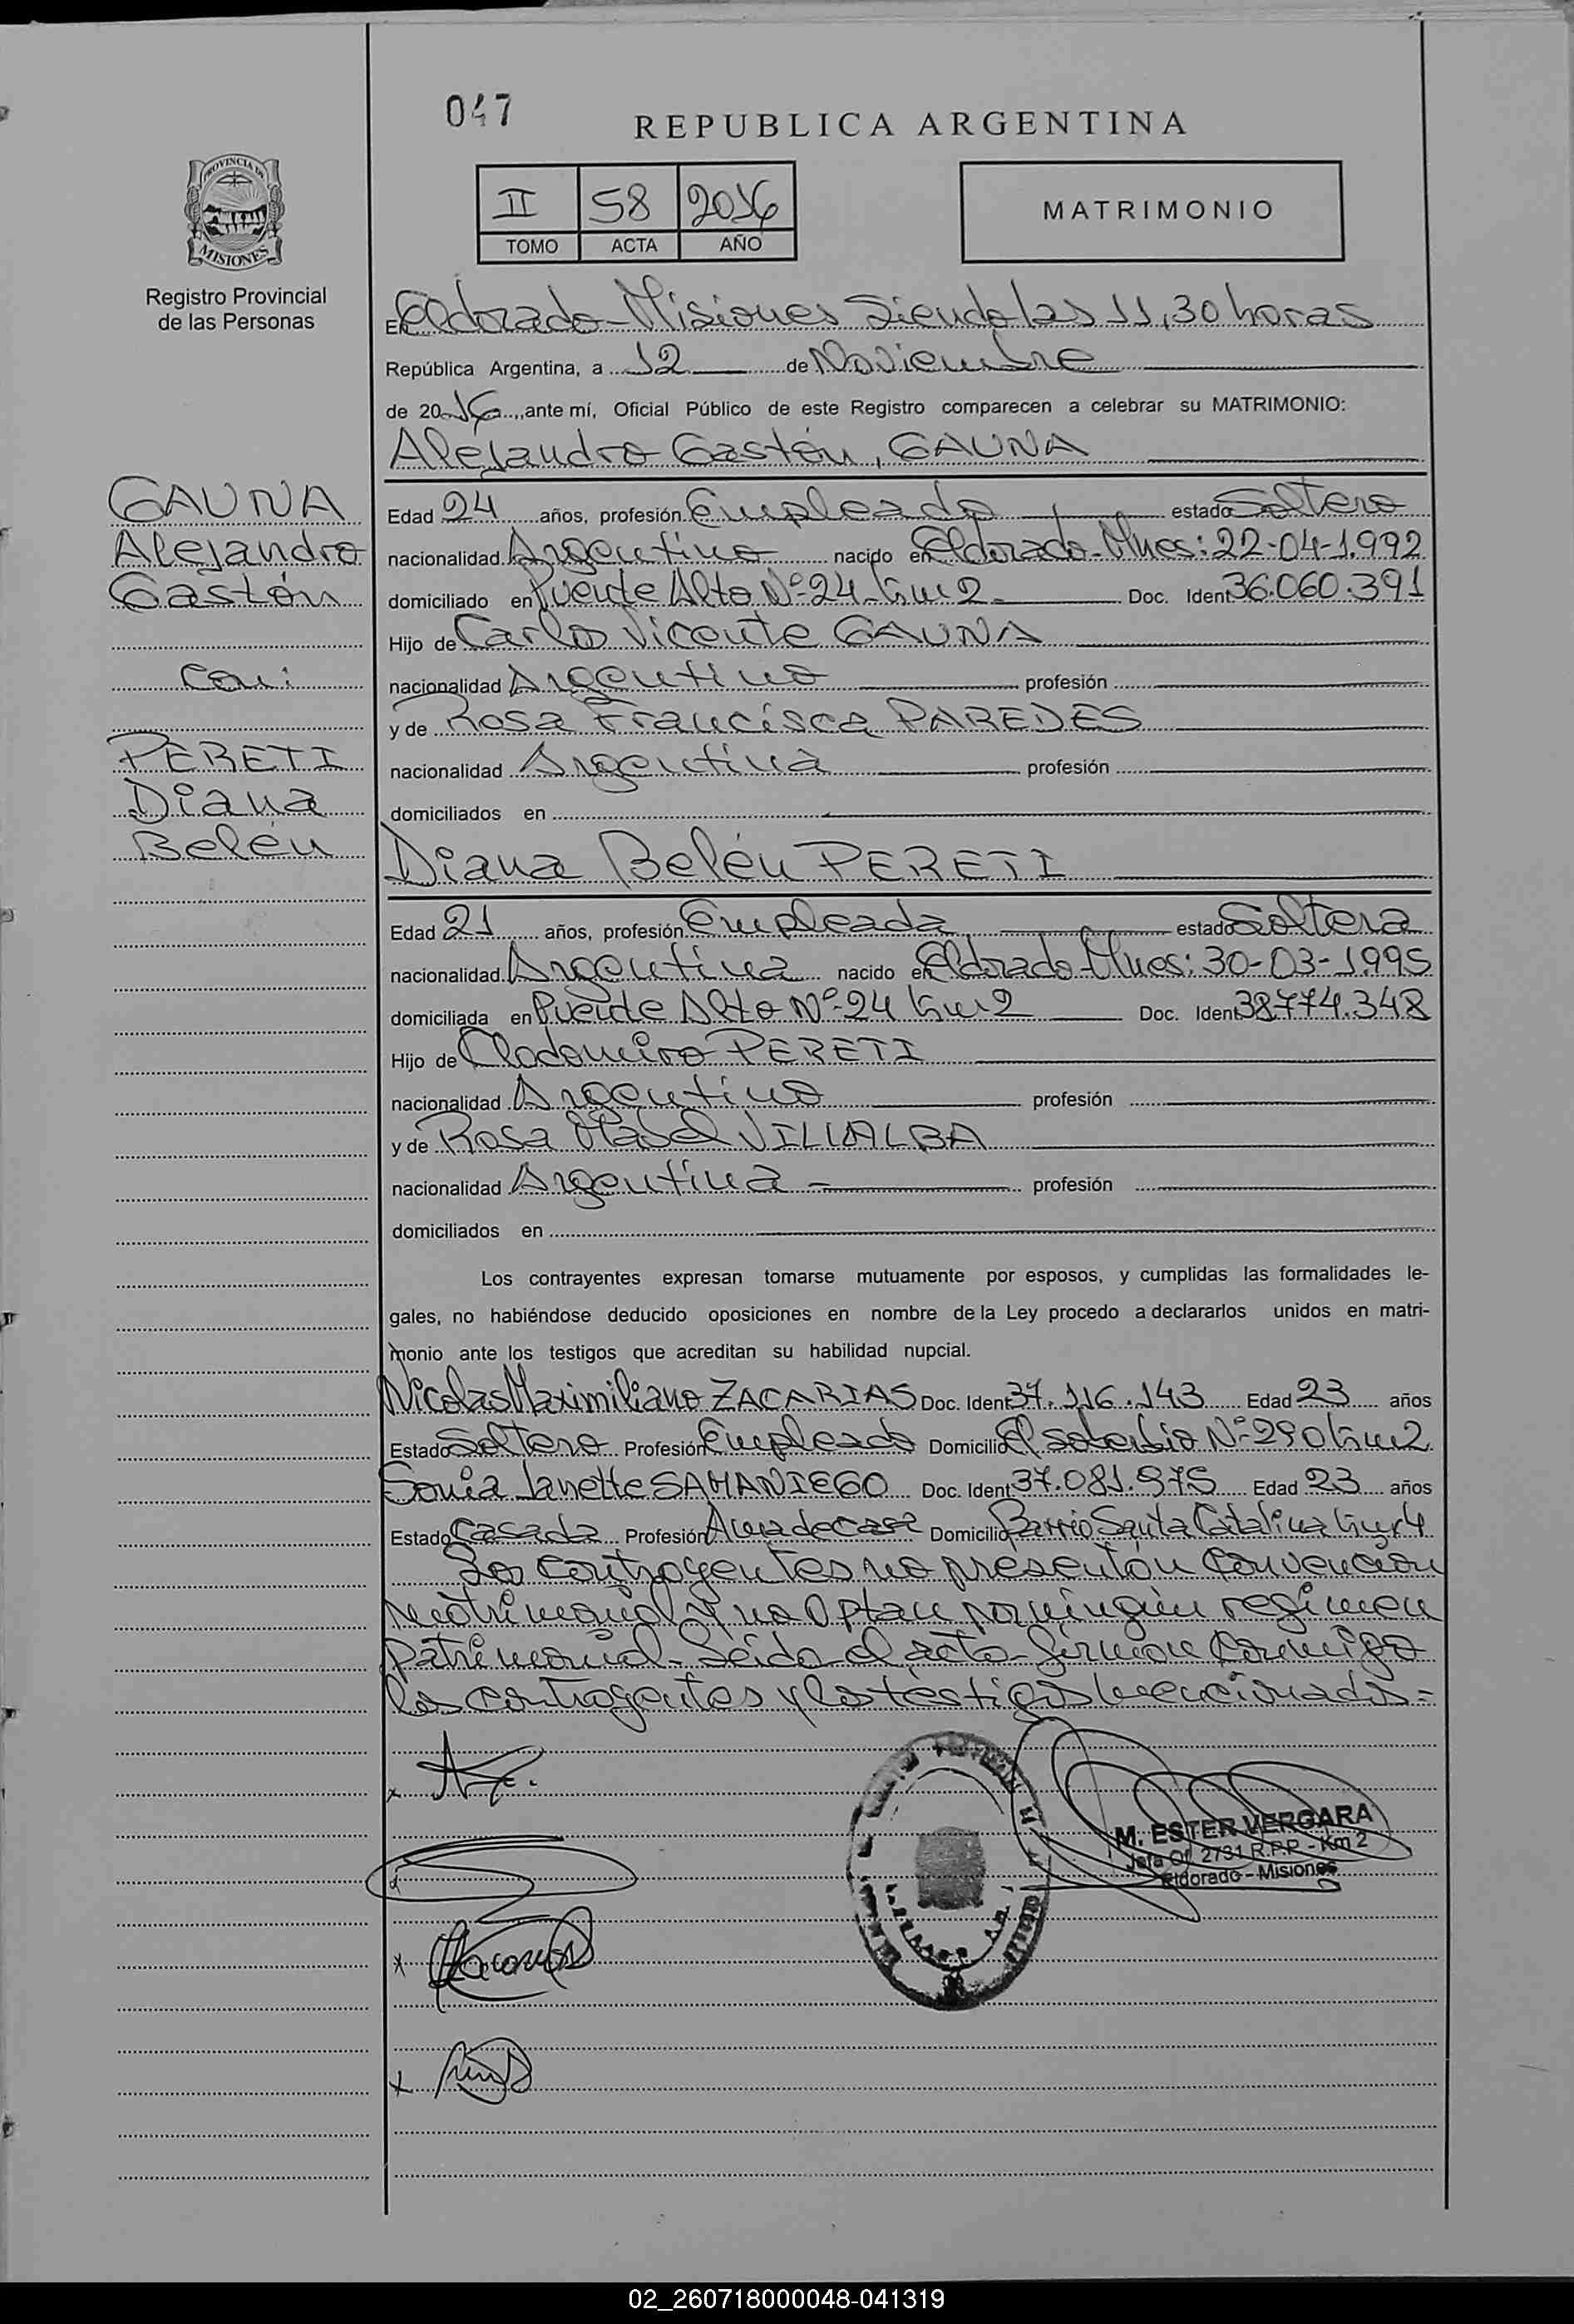 047
REPUBLICA ARGENTINA
PROVINCIA DE
MISIONES
Registro Provincial
de las Personas
II 58 2016
TOMO ACTA AÑO
MATRIMONIO
En Eldorado-Misiones Siendo las 11,30 horas
República Argentina, a 12 de Noviembre
de 2016, ante mí, Oficial Público de este Registro comparecen a celebrar su MATRIMONIO:
Alejandro Gastón, GAUNA
GAUNA
Alejandro
Gastón
Con:
PERETI
Diana
Belén
Edad 24 años, profesión Empleado estado Soltero
nacionalidad Argentino nacido en Eldorado-Mnes: 22-04-1.992
domiciliado en Puente Alto Nº-24-Km 2 Doc. Ident 36.060.391
Hijo de Carlos Vicente GAUNA
nacionalidad Argentino profesión
y de Rosa Francisca PAREDES
nacionalidad Argentina profesión
domiciliados en
Diana Belén PERETI
Edad 21 años, profesión Empleada estado Soltera
nacionalidad Argentina nacido en Eldorado-Mnes: 30-03-1.995
domiciliada en Puente Alto Nº-24 Km 2 Doc. Ident 38.774.348
Hijo de Clodomiro PERETI
nacionalidad Argentino profesión
y de Rosa Mabel VILLALBA
nacionalidad Argentina - profesión
domiciliados en
Los contrayentes expresan tomarse mutuamente por esposos, y cumplidas las formalidades le-
gales, no habiéndose deducido oposiciones en nombre de la Ley procedo a declararlos unidos en matri-
monio ante los testigos que acreditan su habilidad nupcial.
Nicolas Maximiliano ZACARIAS Doc. Ident 37.116.143 Edad 23 años
Estado Soltero Profesión Empleado Domicilio El soberbio Nº-290 Km 2
Sonia Janette SAMANIEGO Doc. Ident 37.081.975 Edad 23 años
Estado Casada Profesión Ama de Casa Domicilio Barrio Santa Catalina Km 4
Los contrayentes no presentan Convención
Matrimonial y no Optan por ningún regimen
patrimonial- Leida el acta- firman Conmigo
los contrayentes y los testigos mencionados=
M. ESTER VERGARA
Jefa Of. 2731 R.P.P. - Km 2
Eldorado - Misiones
02_260718000048-041319